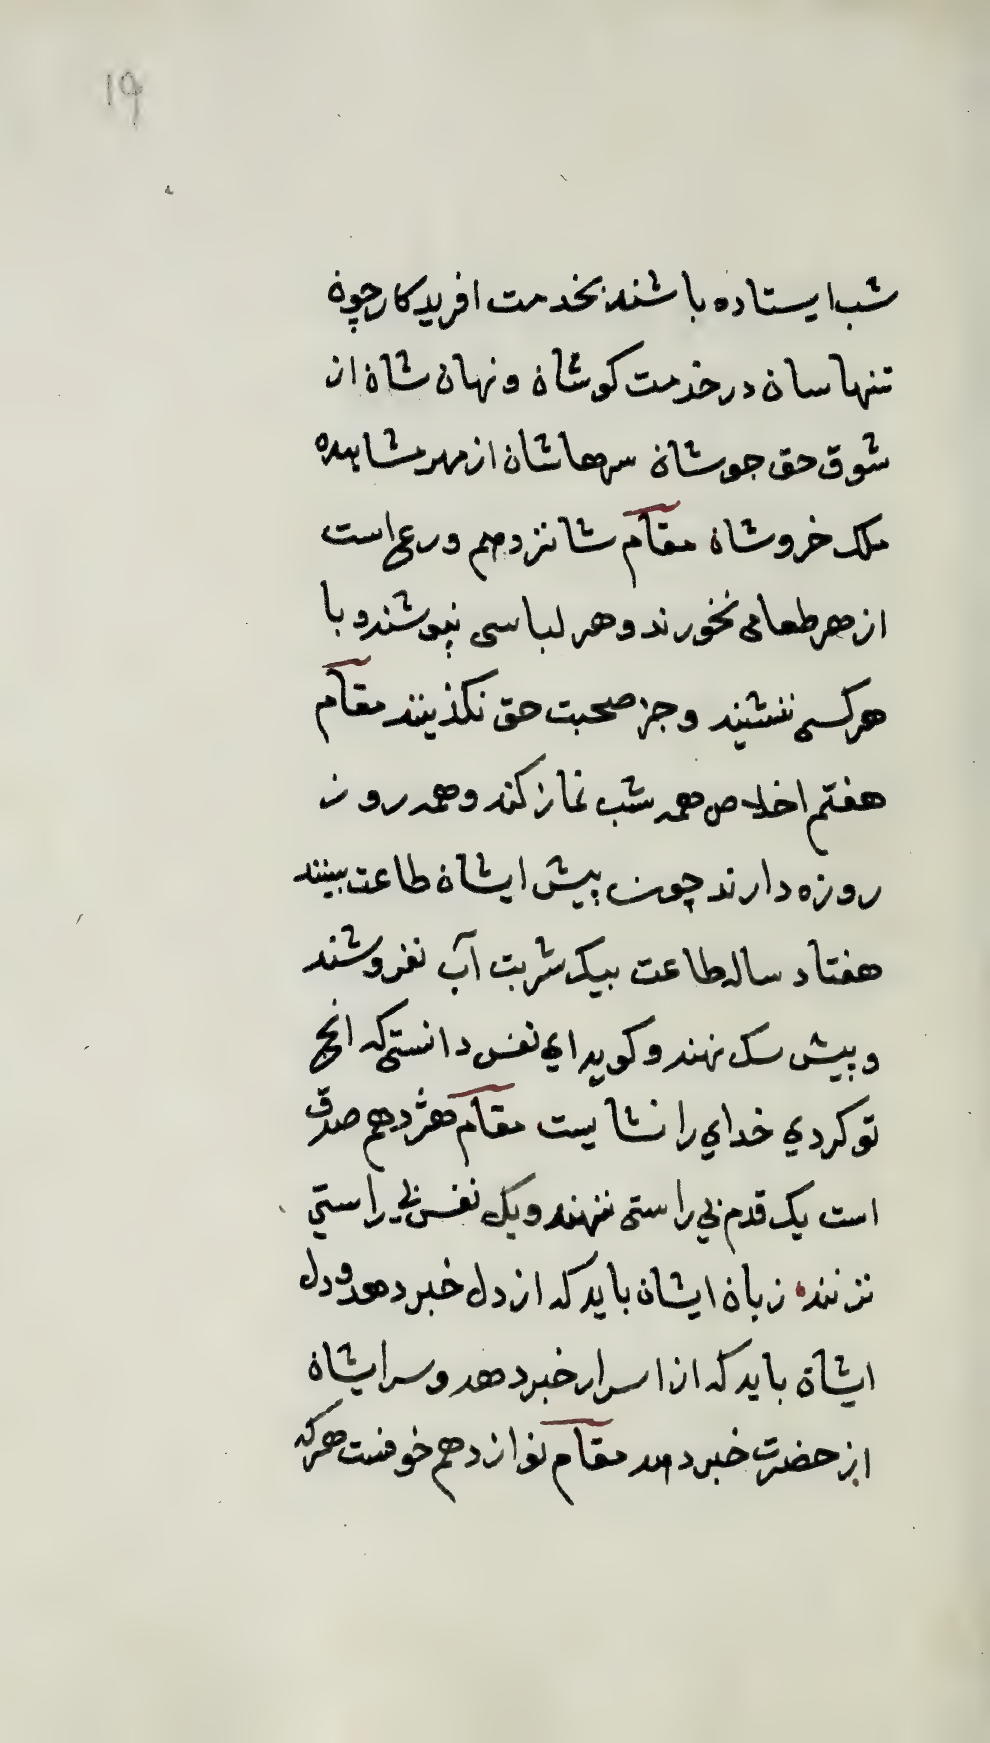 ۱۹
شب ایستاده باشند بخدمت افریدکار چون
تنهاسان در خدمت کوشان و نهان شان از
شوق حق جوشان سرهاشان از مهر مشاهده
ملک خروشان مقآم شانزدهم ورع است
از هر طعامی نخورند و هر لباسی نپوشند و با
هر کسی ننشیند و جز صحبت حق نکذینند مقآم
هفتم اخلاص همه شب نماز کند و همه روز
روزه دارند چون پیش ایشان طاعت بینند
هفتاد ساله طاعت بیک شربت آب نفروشند
و پیش سک نهند و کوید ای نفس دانستی که انچ
تو کردی خدای را نشایست مقآم هژدهم صدق
است یک قدم بی راستی ننهند و یک نفس بی راستی
نزنند زبان ایشان باید که از دل خبر دهد و دل
ایشان باید که از اسرار خبر دهد و سر ایشان
از حضرت خبر دهد مقآم نوازدهم خوفست هر که